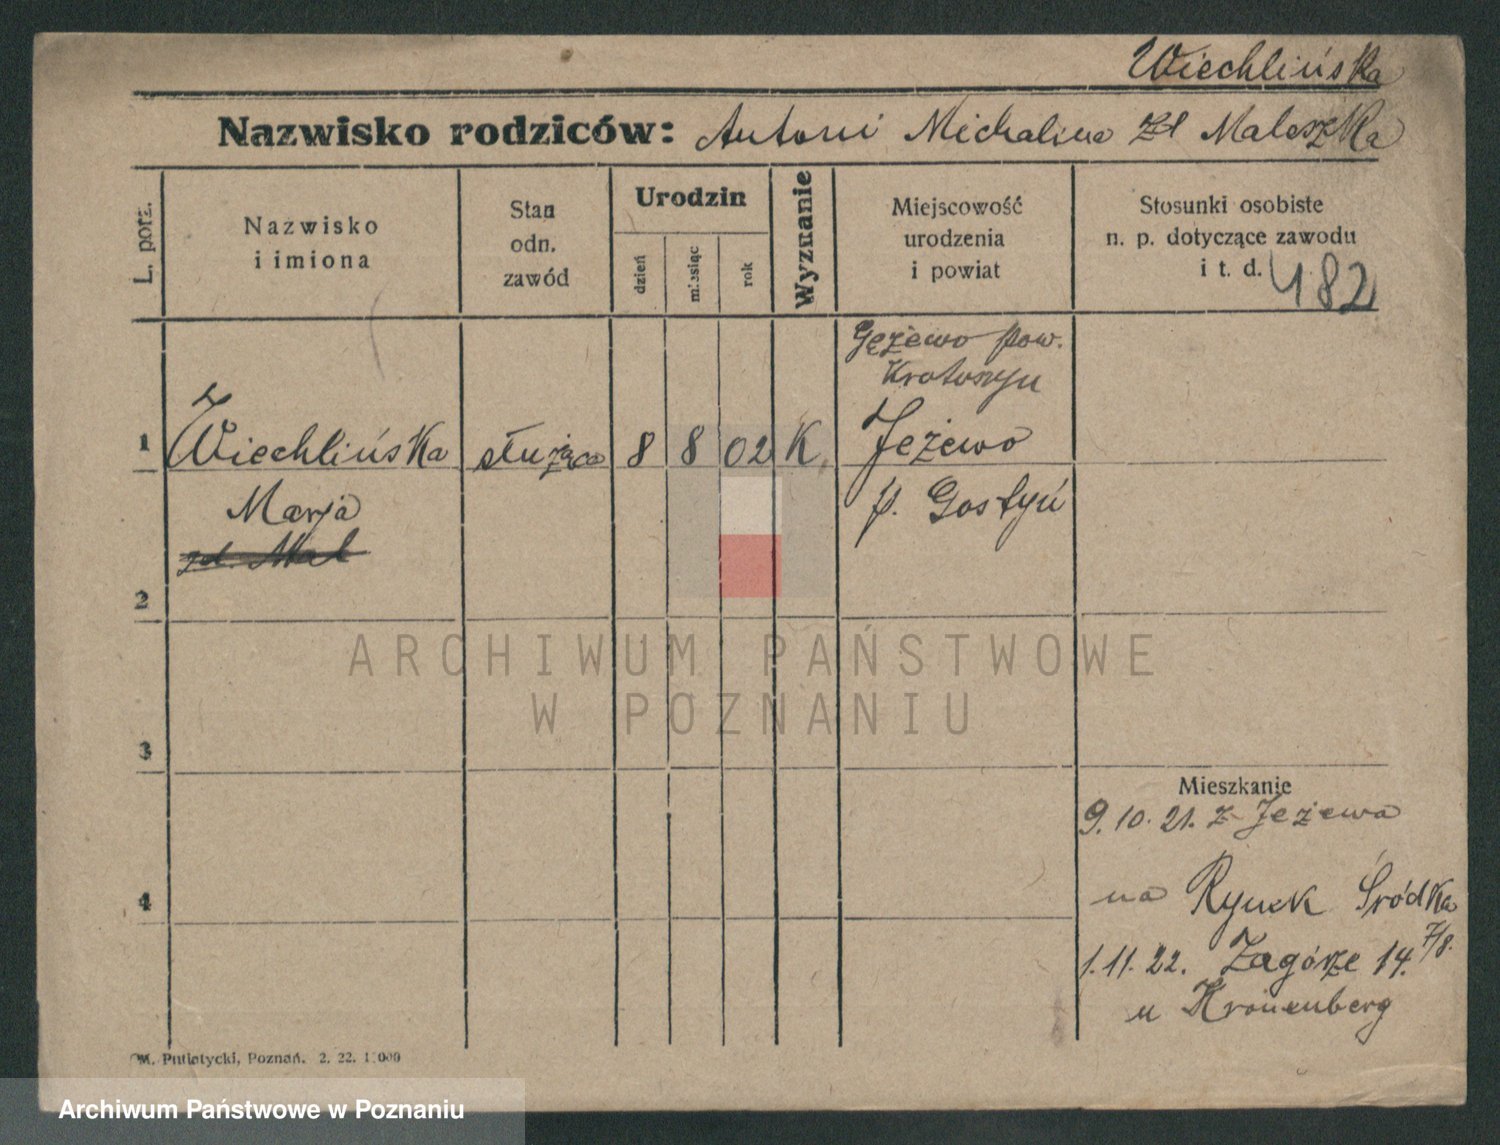 Wiechlińska
Nazwisko rodziców: Antoni Michalina zd Maleszka
L. porz.
Nazwisko
i imiona
Stan
odn.
zawód
Urodzin
dzień
miesiąc
rok
Wyznanie
Miejscowość
urodzenia
i powiat
Stosunki osobiste
n. p. dotyczące zawodu
i t. d.
482
Gężewo pow.
Krotoszyn
1 Wiechlińska służąca 8 8 02 K. Jeżewo
Marja p. Gostyń
zd. Mal
2
ARCHIWUM PAŃSTWOWE
W POZNANIU
3
Mieszkanie
9.10.21. z Jeżewa
4
na Rynek Śródka
7/8.
1.11.22. Zagórze 14.
u Kronenberg
M. Putiatycki, Poznań. 2. 22. 1 000
Archiwum Państwowe w Poznaniu